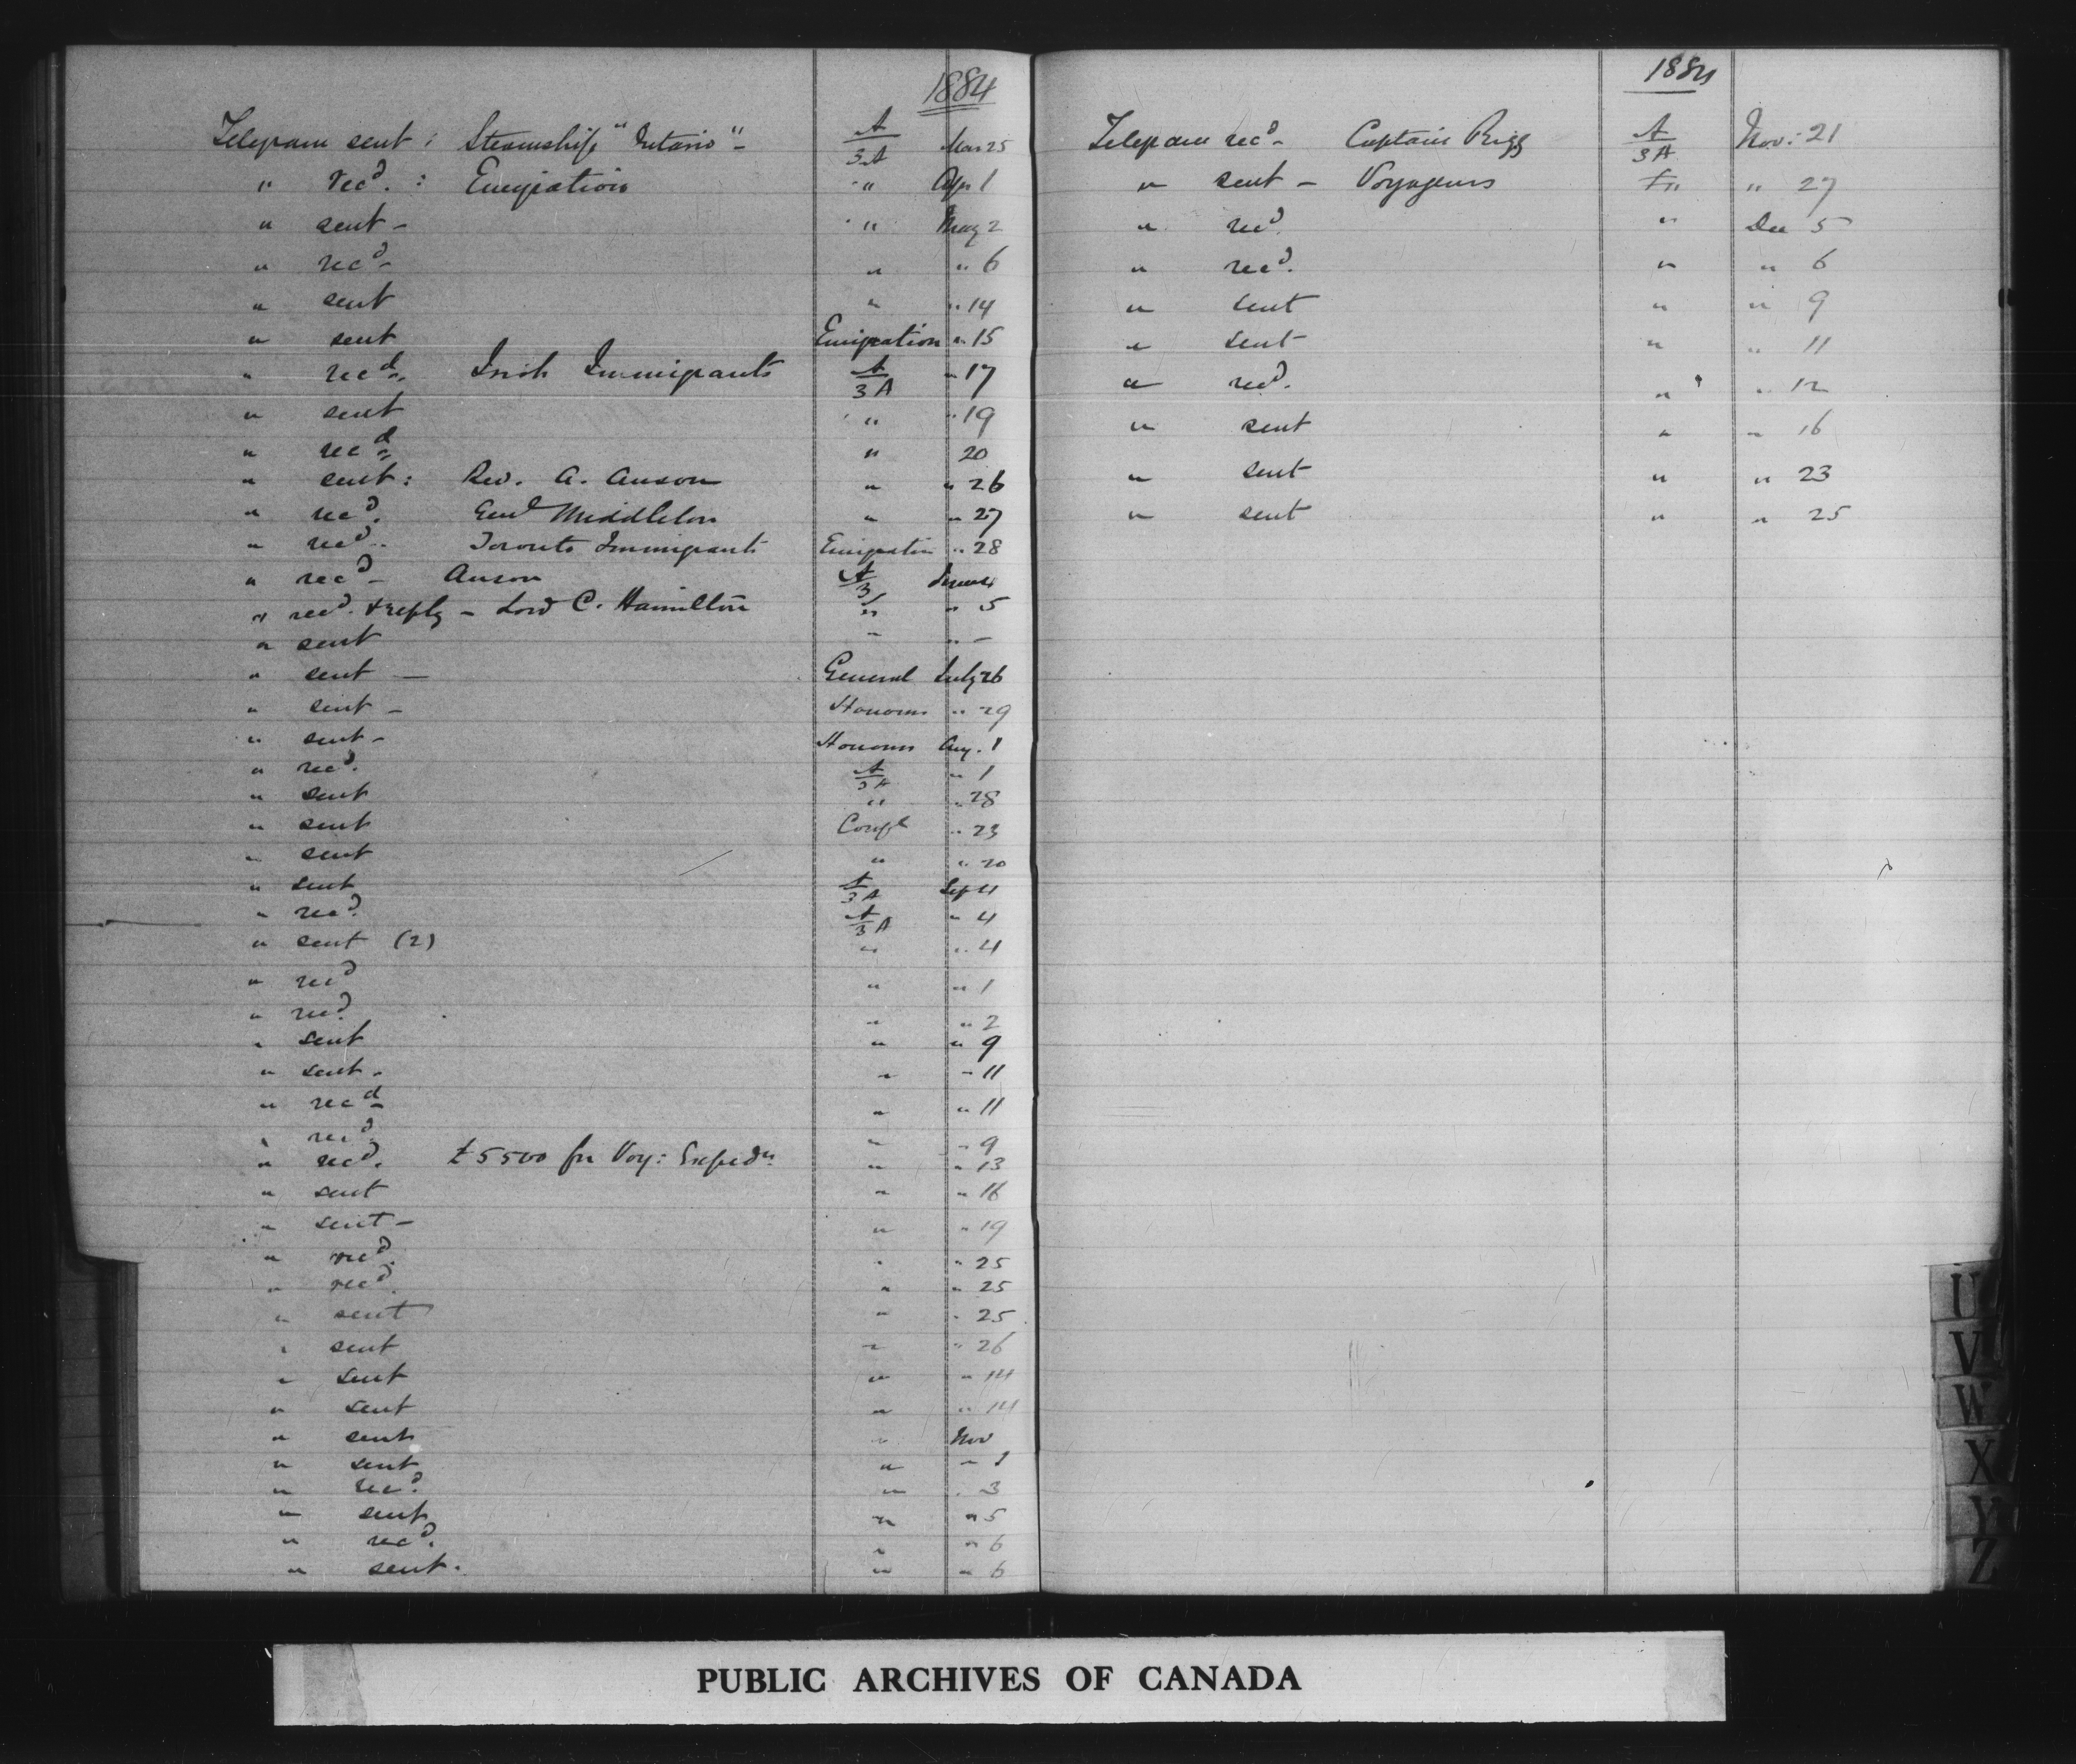 1884
Telegram sent : Steamship "Ontario" - A/3A Mar 25
" recd. : Emigration " Apr 1
" sent - " May 2
" recd - " " 6
" sent " " 14
" sent Emigration " 15
" recd. Irish Immigrants A/3A " 17
" sent " " 19
" recd " 20
" sent : Rev. A. Anson " " 26
" recd. Genl Middleton " " 27
" recd. Toronto Immigrants Emigration " 28
" recd - Anson A/3 June 4
" recd. & reply - Lord C. Hamilton " " 5
" sent " " -
" sent — General July 26
" sent - Honours " 29
" sent - Honours Aug. 1
" recd. A/3A " 1
" sent " " 28
" sent Confl " 23
" sent " " 20
" sent A/3A Sep 4
" recd. A/3A " 4
" sent (2) " " 4
" recd " " 1
" recd " " 2
" sent " " 9
" sent - " " 11
" recd " " 11
" recd. " " 9
" recd. £5500 for Voy: Expedn " " 13
" sent " " 16
" sent - " " 19
" recd. " " 25
" recd. " " 25
" sent " " 25
" sent " " 26
" sent " " 14
" sent " " 14
" sent " Nov
" sent " " 1
" recd. " " 3
" sent " " 5
" recd. " " 6
" sent. " " 6
1884
Telegram recd - Captain Rigg A/3A Nov: 21
" sent - Voyageurs " " 27
" recd. " Dec 5
" recd. " " 6
" sent " " 9
" sent " " 11
" recd. " " 12
" sent " " 16
" sent " " 23
" sent " " 25
U
V
W
X
Y
Z
PUBLIC ARCHIVES OF CANADA